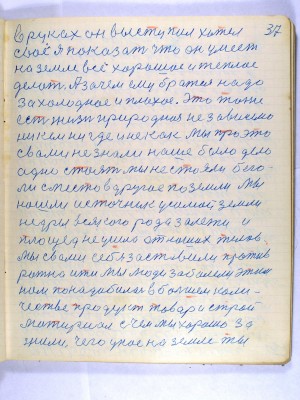 37
в руках он выступил хотел
своё я показат что он умеет
на земле всё хорошае и теплае
делит. А зачем ему братся надо
за холодное и плохое. Это то же
ест жизн природная не зависемо
ни кем ни где и не как. Мы про это
с вами не знали наше было дело
одно стоят мы не стояли бего-
ли с место в другое по земли. Мы
нашли источник у самой земли
недры всякого рода залежи и
площед не ушло от наших
Мы с вами себя заставили против
ратно ити мы люди заболели этим
нам понадобилас в болшем коли-
чество продукт товар и строй
материал с чем мы хорошо за
жили, чего унас на земле ты